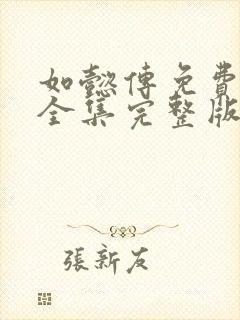 如懿傳免費
全集完整版
張新友